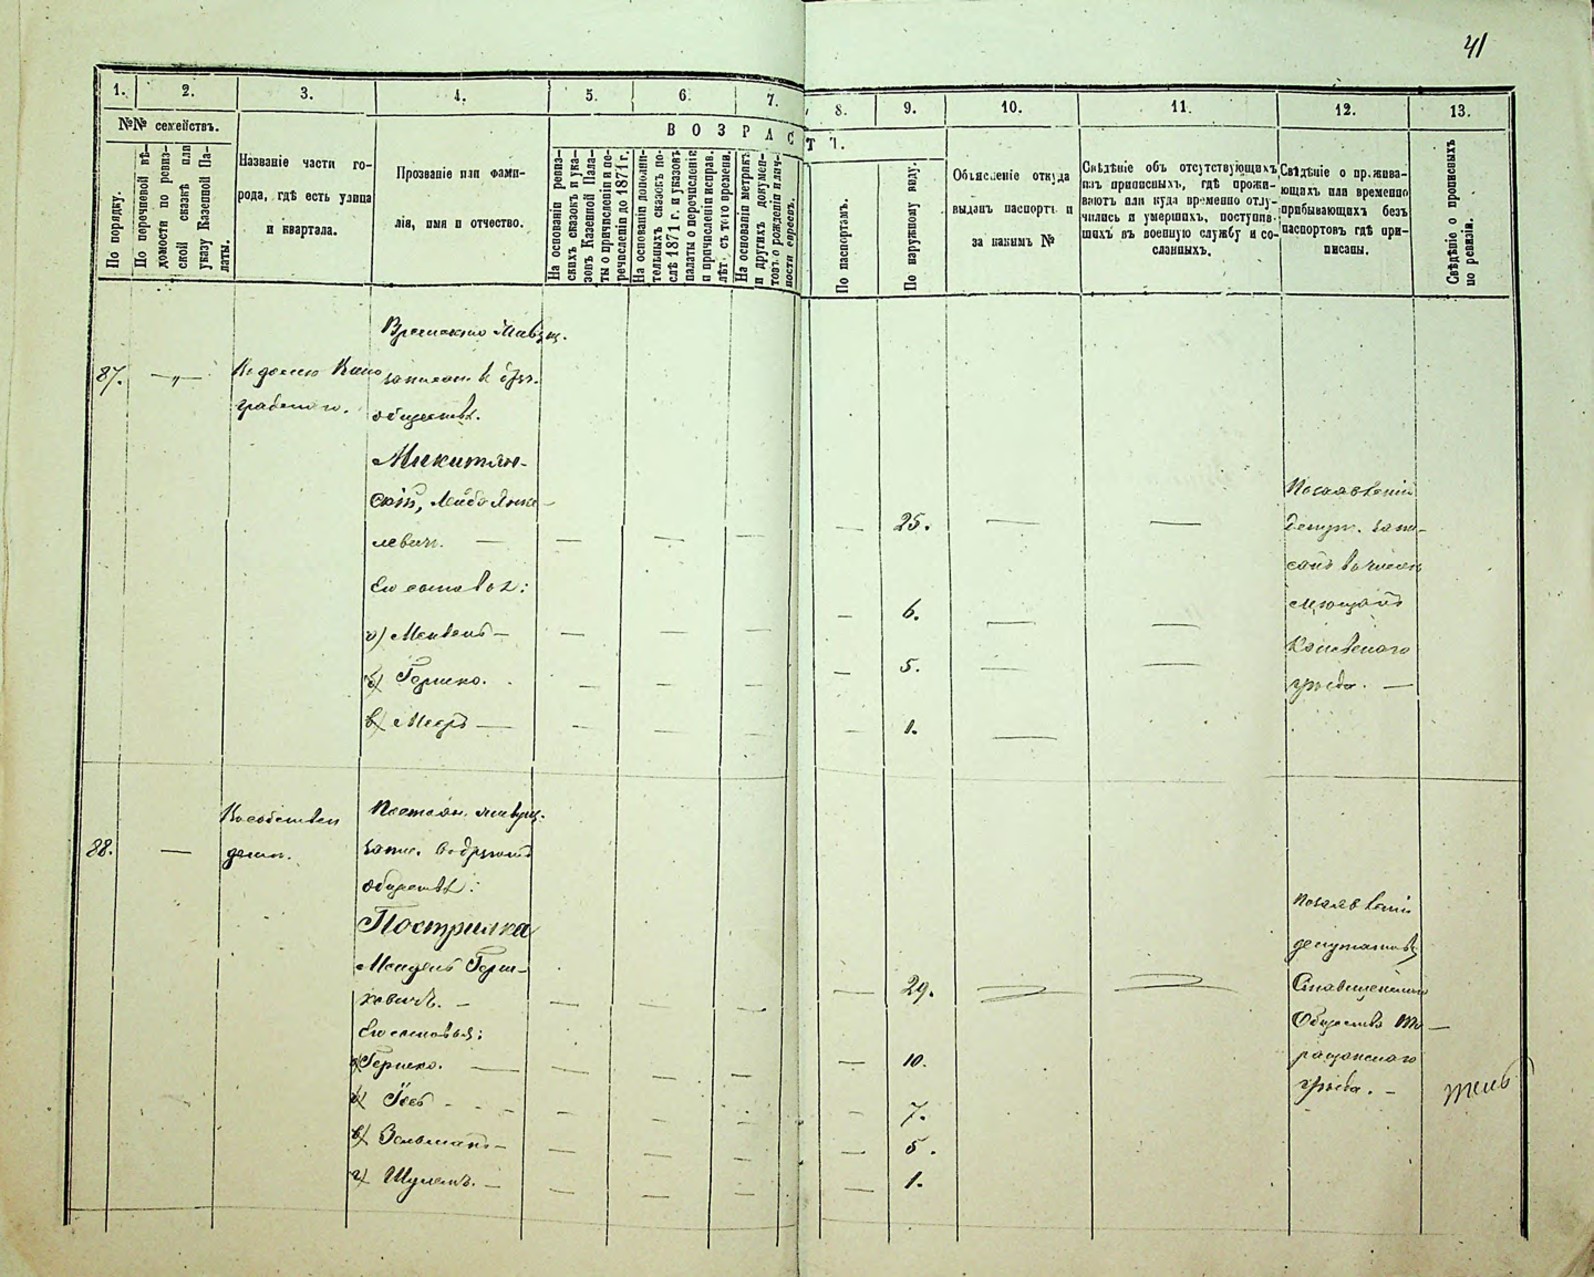 41
1. 2. 3. 4. 5. 6. 7. 8. 9. 10. 11. 12. 13.
№№ семействъ.
По порядку.
По перечневой вѣ-
домости по ревиз-
ской сказкѣ или
указу Казенной Па-
латы.
Названіе части го-
рода, гдѣ есть улица
и квартала.
Прозваніе или фами-
лія, имя и отчество.
ВОЗРАСТЪ.
На основаніи ревиз-
скихъ сказокъ и ука-
зовъ Казенной Пала-
ты о причисленіи и пе-
речисленіи до 1871 г.
На основаніи дополни-
тельныхъ сказокъ по-
слѣ 1871 г. и указовъ
палаты о перечисленіи
и причисленіи исправ.
лѣтъ съ того времени.
На основаніи метрикъ
и другихъ докумен-
товъ о рожденіи и лич-
ности евреевъ.
По паспортамъ.
По наружному виду.
Объясненіе откуда
выданъ паспортъ и
за какимъ №
Свѣдѣніе объ отсутствующихъ
изъ приписныхъ, гдѣ прожи-
ваютъ или куда временно отлу-
чились и умершихъ, поступив-
шихъ въ военную службу и со-
сланныхъ.
Свѣдѣніе о прожива-
ющихъ или временно
прибывающихъ безъ
паспортовъ гдѣ при-
писаны.
Свѣдѣніе о прописныхъ
по ревизіи.
87.
записан. в друг.
обществѣ.
Микитян-
скій, Лейба Янке-
левич.
Его сыновья:
а) Мендель
б) Гершко.
в) Мееръ
25.
6.
5.
1.
По заявленію
депут. запи-
санъ в число
мѣщанъ
Каневскаго
уѣзда.
88.
В собствен
домѣ.
Постоян. живущ.
запис. в другомъ
обществѣ:
Пострилка
Мендель Герш-
ковичъ.
Его сыновья:
а) Гершко.
б)
в) Зельманъ
г) Шулемъ.
29.
10.
7.
5.
1.
По заявленію
депутатовъ
Ставищенскаго
Общества Та-
ращанскаго
уѣзда.